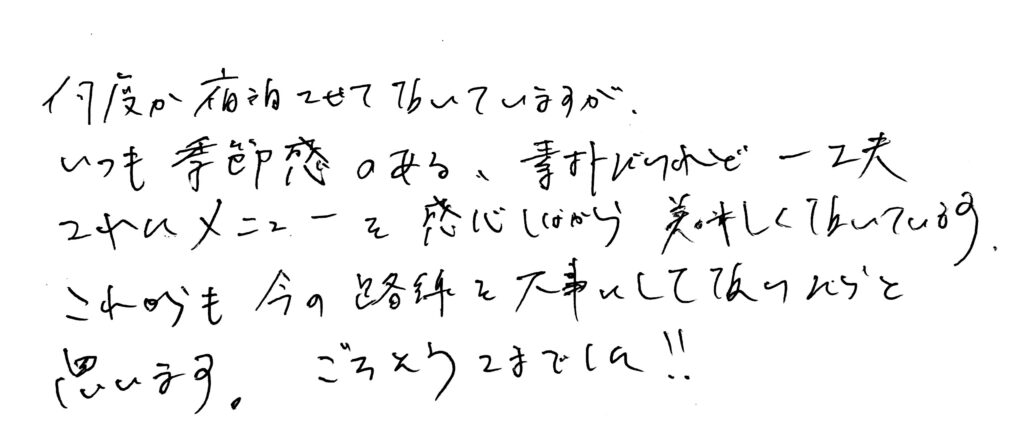 何度か宿泊させて頂いていますが、
いつも季節感のある、素朴だけれど一工夫
されたメニューを感心しながら美味しく頂いています。
これからも今の路線を大事にして頂けたらと
思います。ごちそうさまでした!!